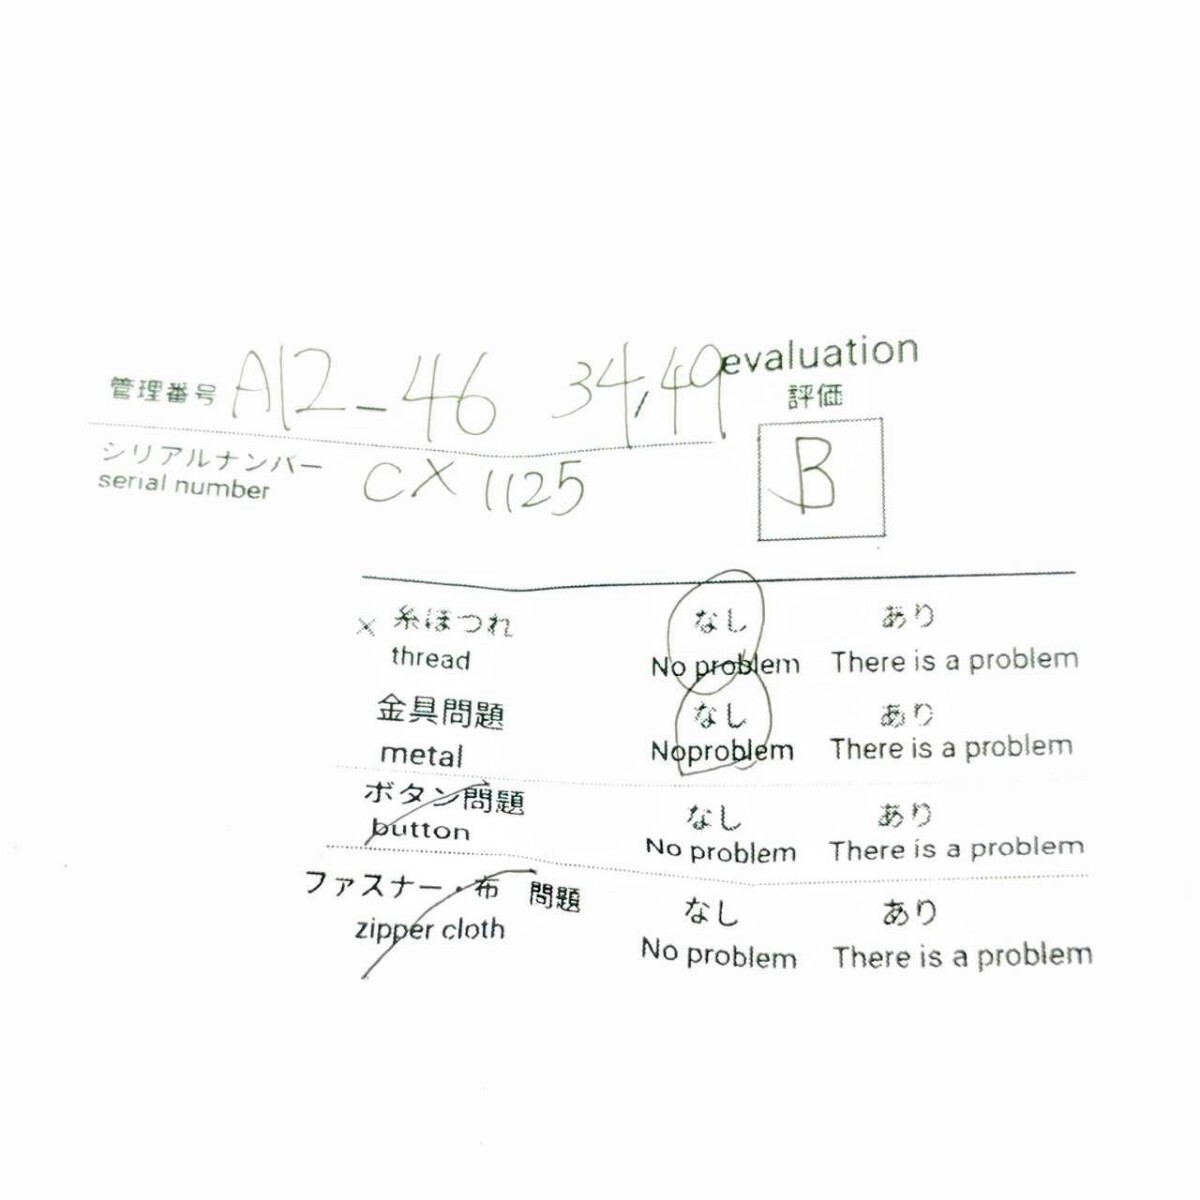 管理番号 A12-46 34,49
evaluation
評価
シリアルナンバー
serial number CX 1125
B
× 糸ほつれ なし あり
thread No problem There is a problem
金具問題 なし あり
metal Noproblem There is a problem
ボタン問題 なし あり
button No problem There is a problem
ファスナー・布 問題 なし あり
zipper cloth No problem There is a problem